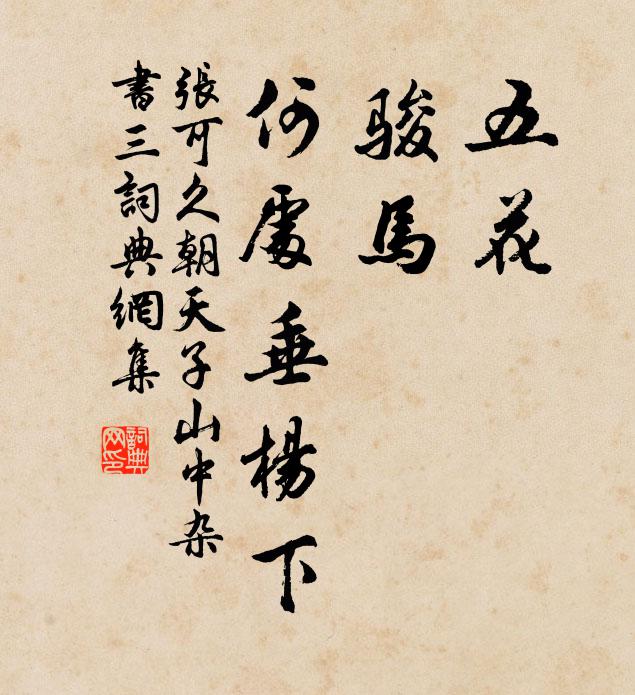 五花
骏馬
何處垂楊下
張可久朝天子山中杂
書三詞典網集
詞典网印